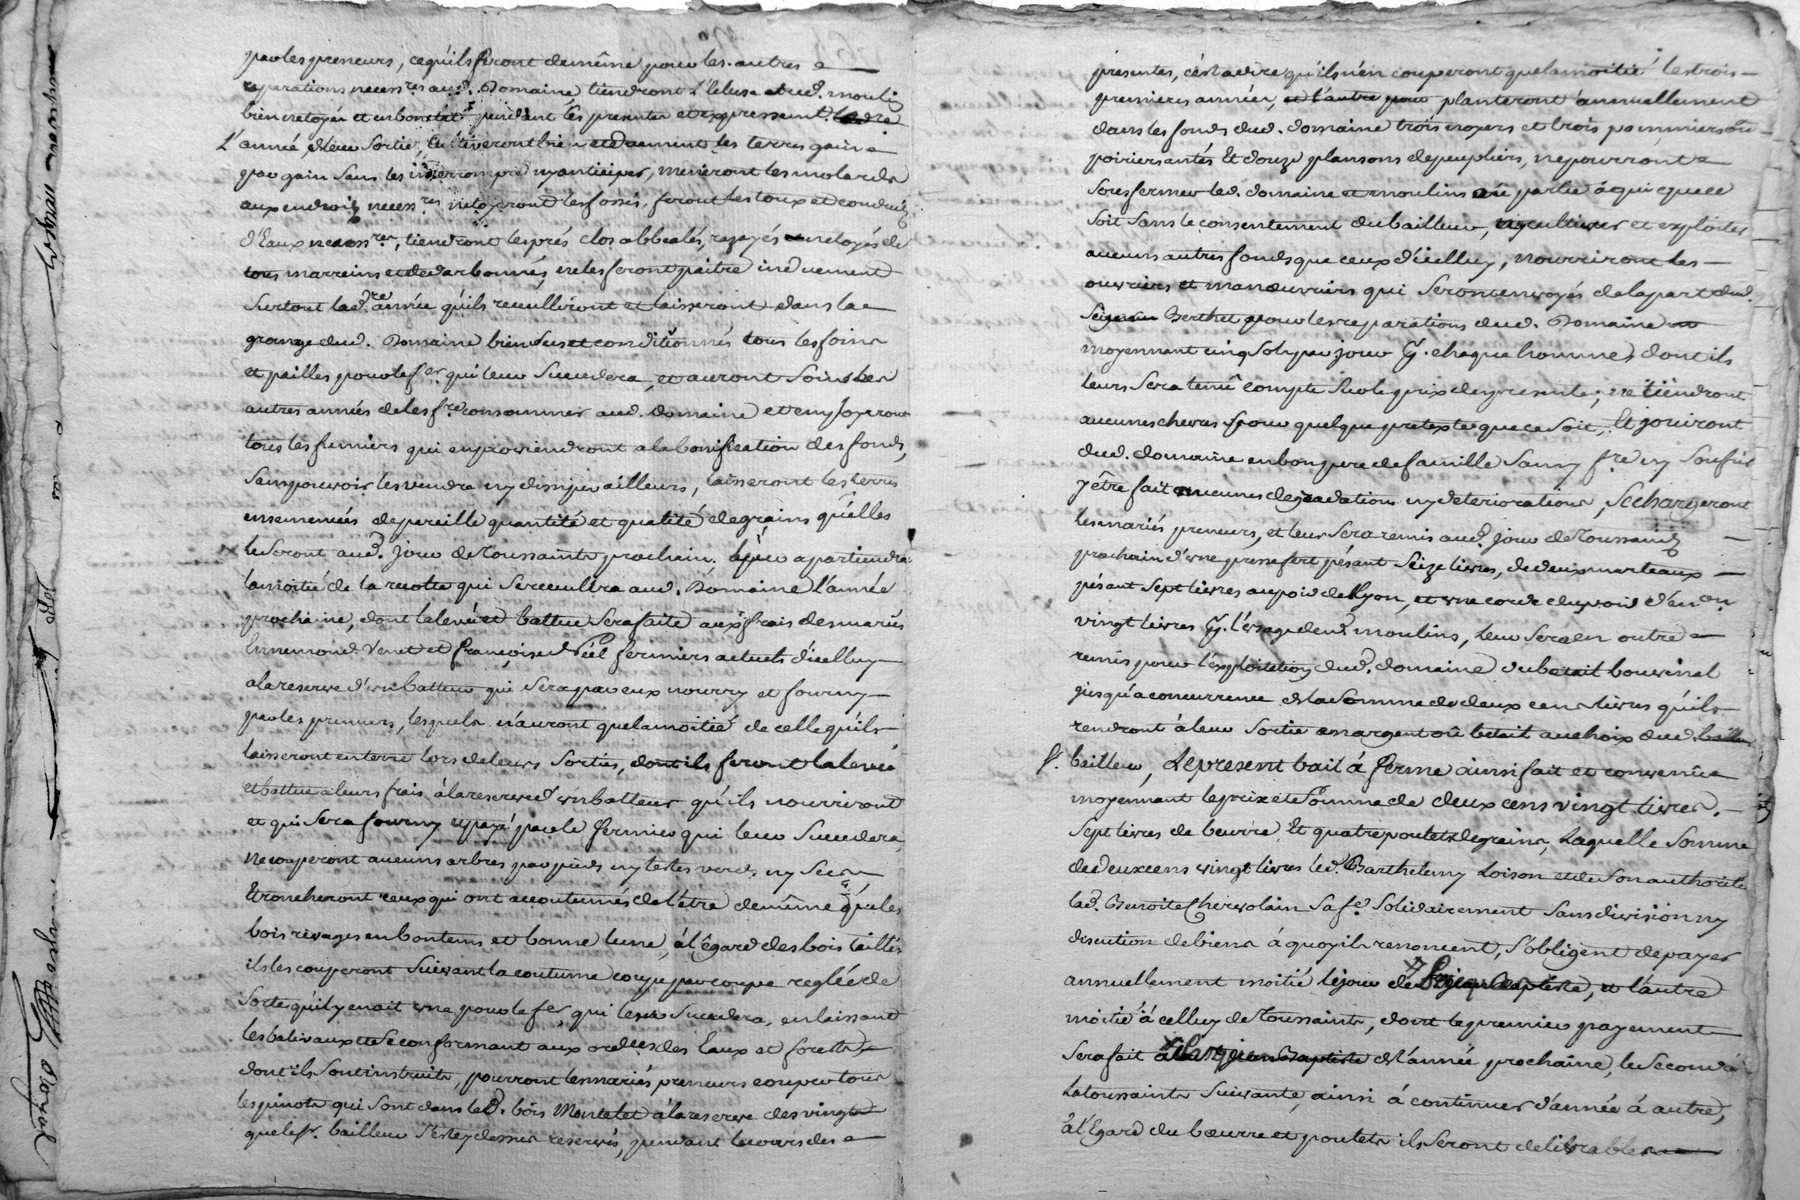 par les preneurs, ce qu'ils feront de même pour les autres
reparations necess.res aud. Domaine tiendront l'Ecluse dud. moulin
bien netoyée et en bon état pendant les presentes et expressement
L'année de leur Sortie, Cultiveront bien et duement les terres gain
par gain sans les interrompre ny anticiper, meneront les molards
aux endroits necess.res netoyeront les fossés, feront les toux et conduits
d'Eaux necess.res, tiendront les prés clos abbealés, razayés netoyés de
tous marreins et de darbonnés, ne les feront paitre induement
Surtout lad. d.re année qu'ils recuilliront et laisseront dans la
grange dud. Domaine bien Sus et conditionnés tous les foins
et pailles pour le f.er qui leur Succedera, et auront Soin les
autres années de les f.re consommer aud. domaine et employeront
tous les fumiers qui en proviendront a la bonification des fonds,
Sans pouvoir les vendre ny dissiper ailleurs, laisseront les terres
ensemencées de pareille quantité et qualité de grains qu'elles
le Seront aud. jour de Toussaints prochain. leur apartiendra
la moitié de la recolte qui Se recuillira aud. Domaine l'année
prochaine, dont la levée et battue Sera faite aux frais des mariés
Ennemond Venet et françoise Piel fermiers actuels d'icelluy
a la reserve d'un batteur qui Sera par eux nourry et fourny
par les preneurs, lesquels n'auront que la moitié de celle qu'ils
laisseront en terre lors de leurs Sorties, dont ils feront la levée
et battue a leurs frais, à la reserve d'un batteur qu'ils nourriront
et qui Sera fourny et payé par le fermier qui leur Succedera
Ne couperont aucuns arbres par pieds ny testes verds, ny Secs
Etroncheront ceux qui ont accoutumés de l'être de même que les
bois rivages en bon tems et bonne lune, à l'Egard des bois taillés
ils les couperont Suivant la coutume coupe par coupe reglée de
Sorte qu'il y en ait une pour le fer. qui leur Succedera, en laissant
les balivaux et Se conformant aux ord.ces des Eaux et forets
dont ils Sont instruits, pourront les mariés preneurs couper tous
les pinots qui Sont dans led. bois Montelet à la reserve des vingt
que le Sr. bailleur S'est cy dessus reservés, pendant le cours des
presentes, c'est a dire qu'ils n'en couperont que la moitié les trois
premieres années, et l'autre pour planteront annuellement
dans les fonds dud. domaine trois noyers et trois pommiers ou
poiriers antés Et douze plansons de peupliers, ne pourront
Sousfermer led. domaine et moulins ou partie à qui que ce
Soit Sans le consentement du bailleur, ny cultiver et exploiter
aucuns autres fonds que ceux d'icelluy, nourriront les
ouvriers et manœuvriers qui Seront envoyés de la part dud.
Seigneur Berthet pour les reparations dud. Domaine
moyennant cinq Sols par jour pr. chaque homme, dont ils
leurs Sera tenu compte Sur le prix des presentes; ne tiendront
aucunes chevres pour quelque pretexte que ce Soit, Et jouiront
dud. domaine en bon pere de famille Sans y f.re ny Soufrir
y être fait aucunes degradations ny deteriorations, Se chargeront
les mariés preneurs, et leur Sera remis aud. jour de Toussaints
prochain d'une presse fert pésant Seize livres, de deux marteaux
pésant Sept livres au poid de Lyon, et une corde du poid d'en.on
vingt livres pr. l'usage desd. moulins, leur Sera en outre
remis pour l'exploitation dud. domaine du betail bouvinal
jusqu'a concurrence de la Somme de deux cens livres qu'ils
rendront à leur Sortie en argent ou betail au choix dud. bailleur
Sr. bailleur, Le present bail à ferme ainsi fait et convenüe
moyennant le prix et Somme de deux cens vingt livres.
Sept livres de beurre, Et quatre poulets de grains, Laquelle Somme
de deux cens vingt livres led. Barthelemy Loison et de Son authorité
lad. Benoite Chervolain Sa f.e Solidairement Sans division ny
discution de biens à quoy ils renoncent, S'obligent de payer
annuellement moitié le jour de Jean Baptiste, et l'autre
moitié à celluy de Toussaints, dont le premier payement
Sera fait Jean Baptiste de l'année prochaine, le Second à
La toussaints Suivante, ainsi à continuer d'année à autre,
à l'Egard du bœurre et poulets ils Seront delivrables